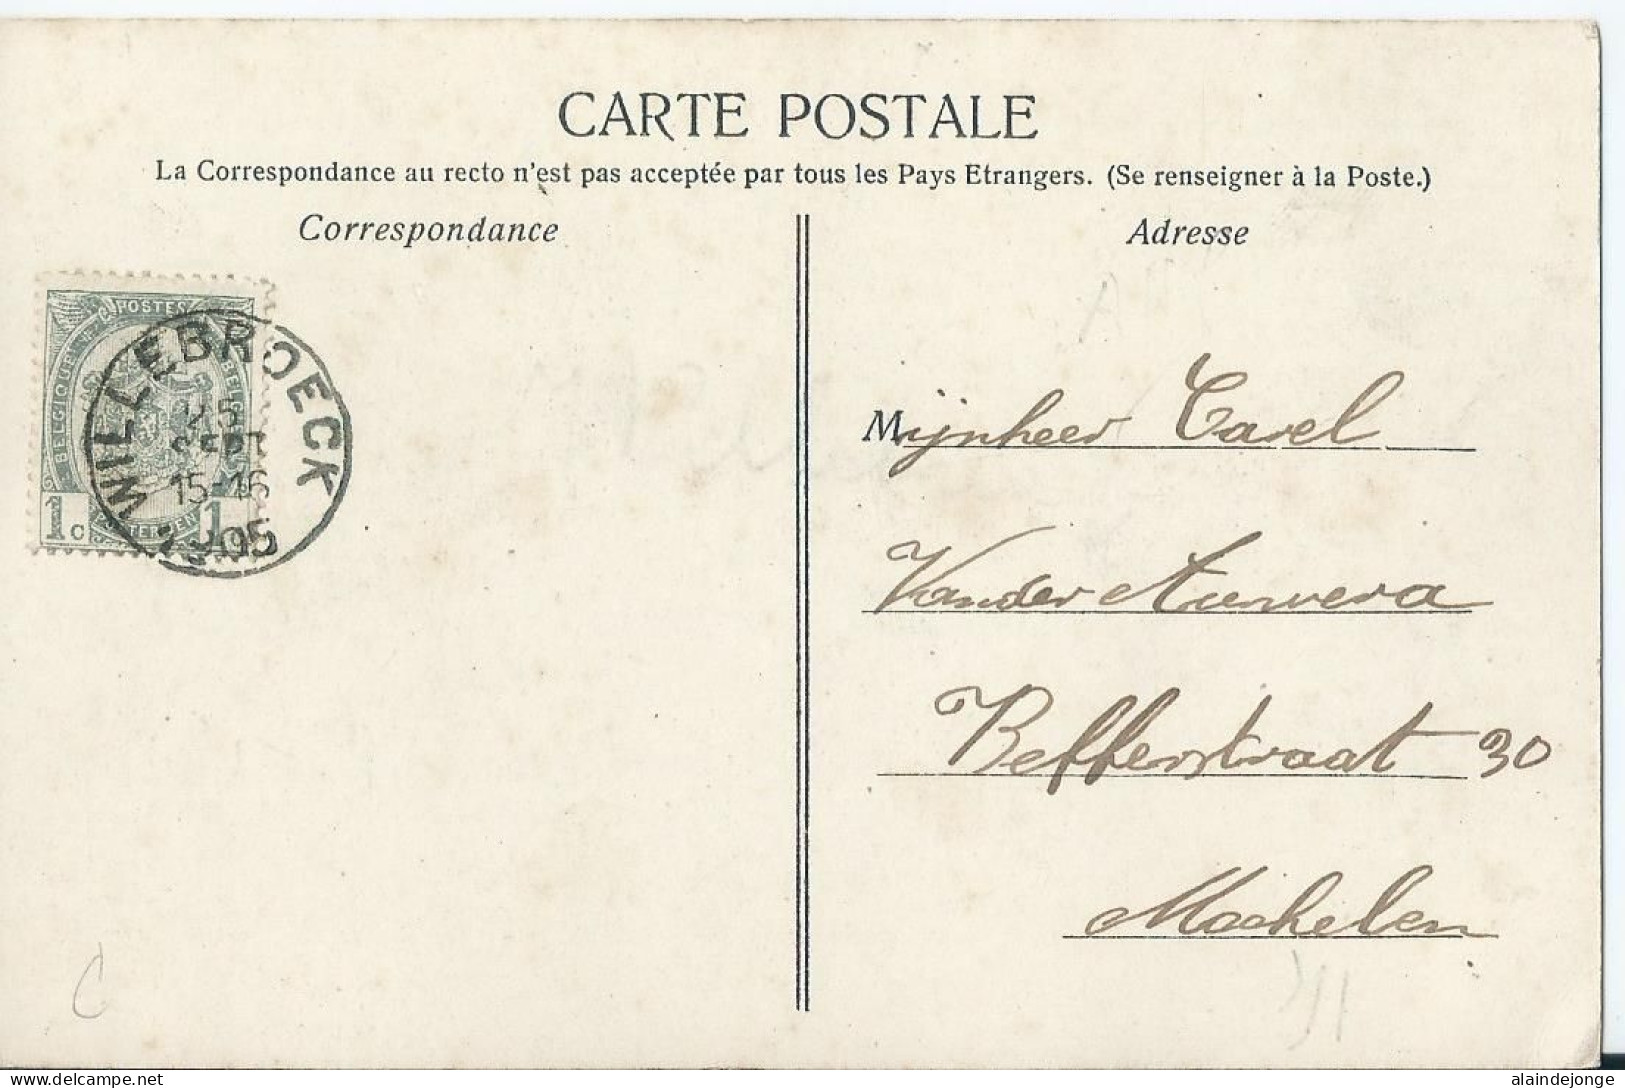 CARTE POSTALE
La Correspondance au recto n'est pas acceptée par tous les Pays Etrangers. (Se renseigner à la Poste.)
Correspondance
Adresse
POSTES
BELGIQUE
1 c 1
WILLEBROECK
25
SEPT
15-16
1905
Mijnheer Carel
Vander Auwera
Befferstraat 30
Mechelen
© www.delcampe.net
alaindejonge